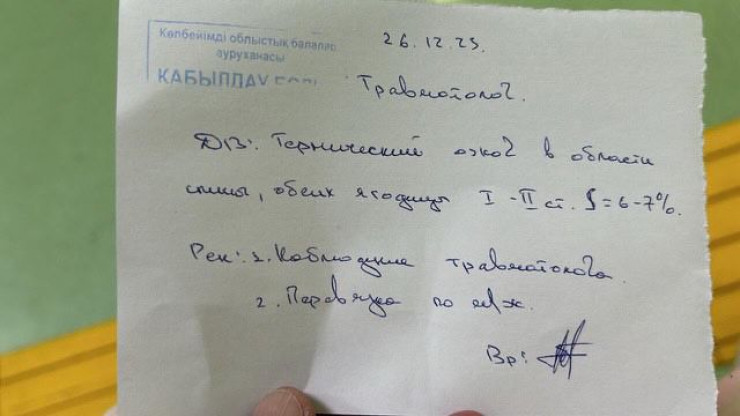 Көпбейімді облыстық балалар
ауруханасы
ҚАБЫЛДАУ
26.12.25.
Травматолог.
DS: Термический ожог в области
спины, обеих ягодиц I-II ст. S=6-7%.
Рек: 1. Наблюдение травматолога.
2. Перевязка по м/ж.
Вр: